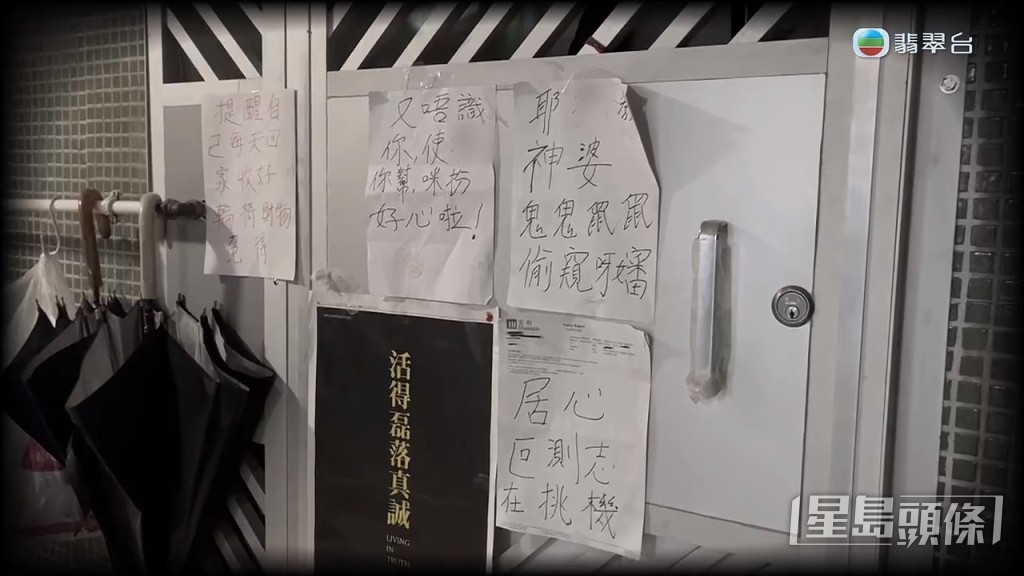 翡翠台
提醒自
己每天回
家收好
輪椅財物
又唔識
你,使
你幫咪扮
好心啦!
耶
神婆
鬼鬼鼠鼠
偷窺呀嬸
活得磊落真誠
LIVING
IN
TRUTH
居心
叵測志
在挑機
星島頭條